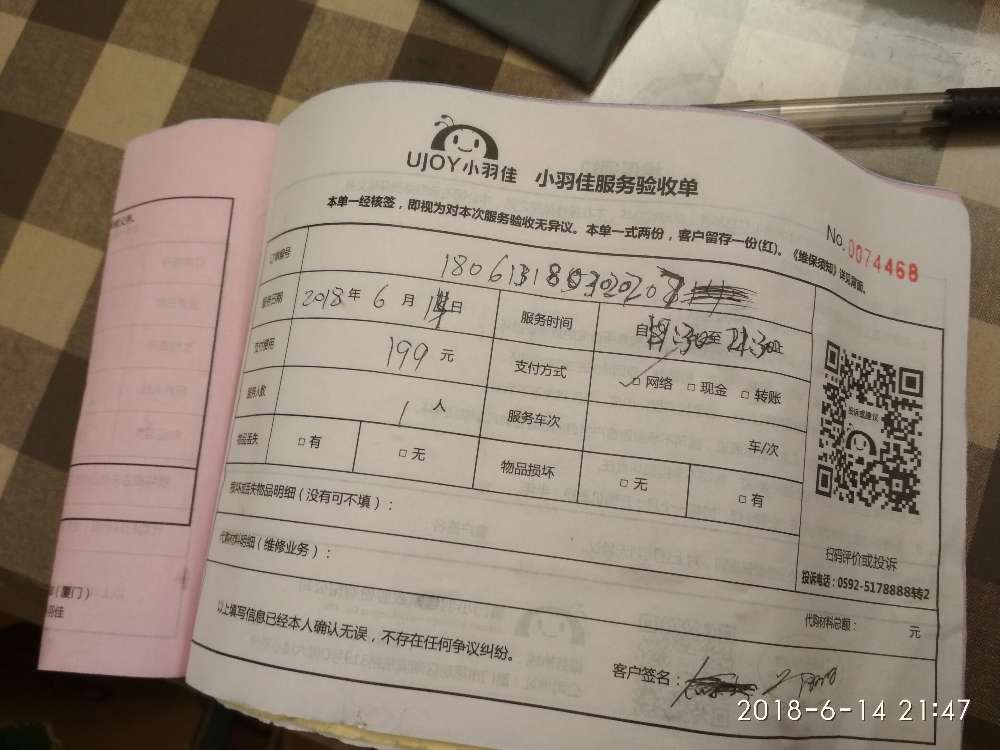 UJOY小羽佳 小羽佳服务验收单
本单一经核签，即视为对本次服务验收无异议。本单一式两份，客户留存一份(红)。《维保须知》详见背面。
No.0074468
订单编号
服务日期 2018年6月14日 服务时间 自19:30至21:30止
支付费用 199元 支付方式 □网络 □现金 □转账
服务人数 1人 服务车次 车/次
物品丢失 □有 □无 物品损坏 □无 □有
损坏或丢失物品明细(没有可不填)：
代购材料明细(维修业务)：
代购材料总额： 元
以上填写信息已经本人确认无误，不存在任何争议纠纷。
客户签名：
投诉或建议
扫码评价或投诉
投诉电话：0592-5178888转2
(厦门)
羽佳
2018-6-14 21:47